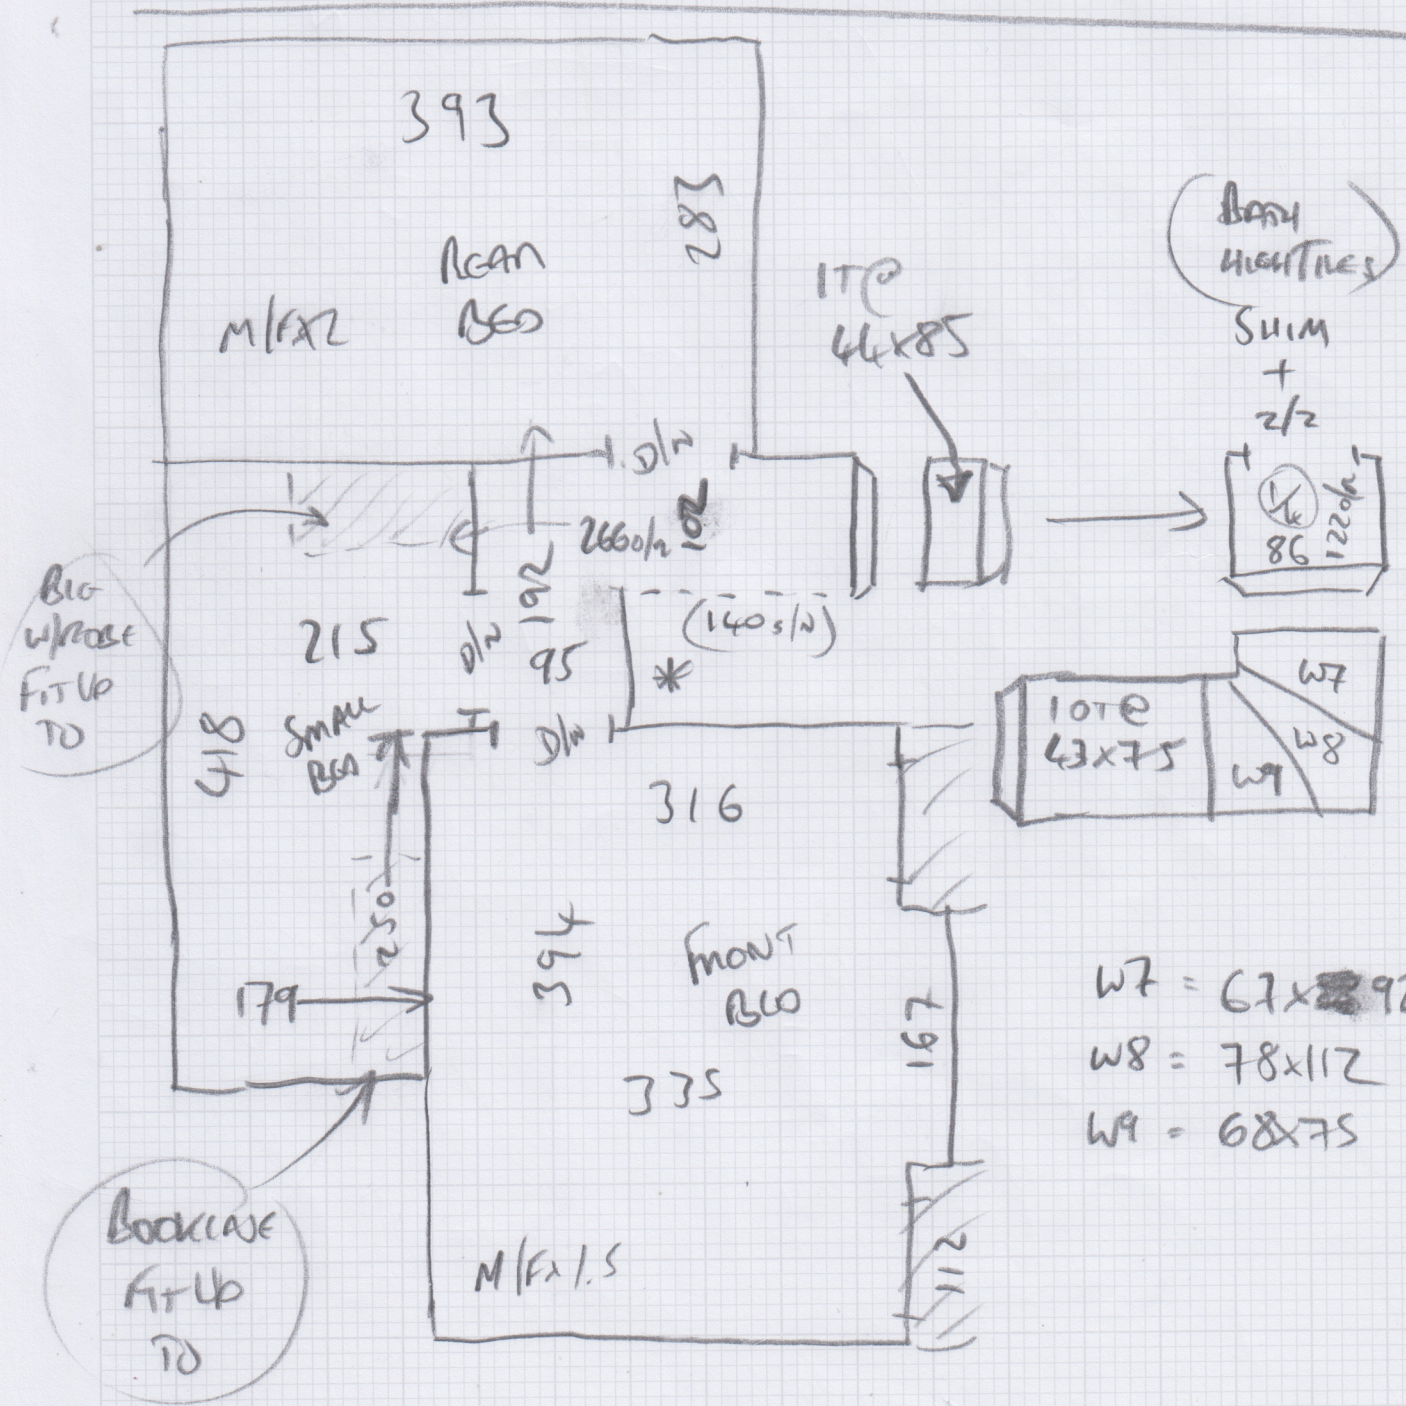 393
283
REAR
BED
M/FX2
1T@
44x85
(BATH
HIGHTILES)
SHIM
+
2/2
86
122o/n
D/N
266o/n
102
192
BIG
W/ROBE
FIT UP
TO
215
D/N
95
(140 s/N)
*
SMALL
BED
418
D/N
10T@
43x75
W7
W8
W9
316
250
394
FRONT
BED
179
167
335
W7 = 67x92
W8 = 78x112
W9 = 68x75
BOOKCASE
FIT UP
TO
M/Fx1.5
112